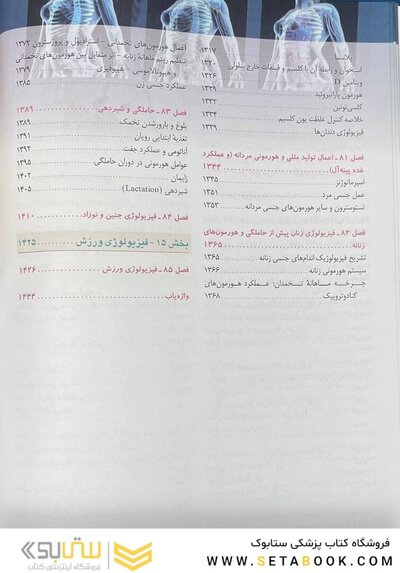 پلاسما ........ ۱۳۱۷
استخوان و رابطه آن با کلسیم و فسفات خارج سلولی ۱۳۲۰
ویتامین D ........ ۱۳۲۶
هورمون پاراتیروئید ........ ۱۳۲۹
کلسی‌تونین ........ ۱۳۳۳
خلاصه کنترل غلظت یون کلسیم ........ ۱۳۳۴
فیزیولوژی دندان‌ها ........ ۱۳۳۹
فصل ۸۱ ـ اعمال تولید مثلی و هورمونی مردانه (و عملکرد
غده پینه‌آل) ........ ۱۳۴۴
اسپرماتوژنز ........ ۱۳۴۵
عمل جنسی مرد ........ ۱۳۵۱
تستوسترون و سایر هورمون‌های جنسی مردانه ........ ۱۳۵۳
فصل ۸۲ ـ فیزیولوژی زنان پیش از حاملگی و هورمون‌های
زنانه ........ ۱۳۶۵
تشریح فیزیولوژیک اندام‌های جنسی زنانه ........ ۱۳۶۵
سیستم هورمونی زنانه ........ ۱۳۶۶
چرخه ماهانهٔ تخمدان: عملکرد هورمون‌های
گنادوتروپیک ........ ۱۳۶۸
اعمال هورمون‌های تخمدانی – استرادیول و پروژسترون ۱۳۷۲
تنظیم ریتم ماهانهٔ زنانه – اثر متقابل بین هورمون‌های تخمدانی
و هیپوتالاموسی – هیپوفیزی ........ ۱۳۷۹
عملکرد جنسی زن ........ ۱۳۸۵
فصل ۸۳ ـ حاملگی و شیردهی ........ ۱۳۸۹
بلوغ و بارورشدن تخمک ........ ۱۳۸۹
تغذیهٔ ابتدایی رویان ........ ۱۳۹۱
آناتومی و عملکرد جفت ........ ۱۳۹۲
عوامل هورمونی در دوران حاملگی ........ ۱۳۹۵
زایمان ........ ۱۴۰۲
شیردهی (Lactation) ........ ۱۴۰۵
فصل ۸۴ ـ فیزیولوژی جنین و نوزاد ........ ۱۴۱۰
بخش ۱۵ ـ فیزیولوژی ورزش ........ ۱۴۲۵
فصل ۸۵ ـ فیزیولوژی ورزش ........ ۱۴۲۶
واژه‌یاب ........ ۱۴۴۴
فروشگاه کتاب پزشکی ستابوک
WWW.SETABOOK.COM
ستابوک
فروشگاه اینترنتی کتاب